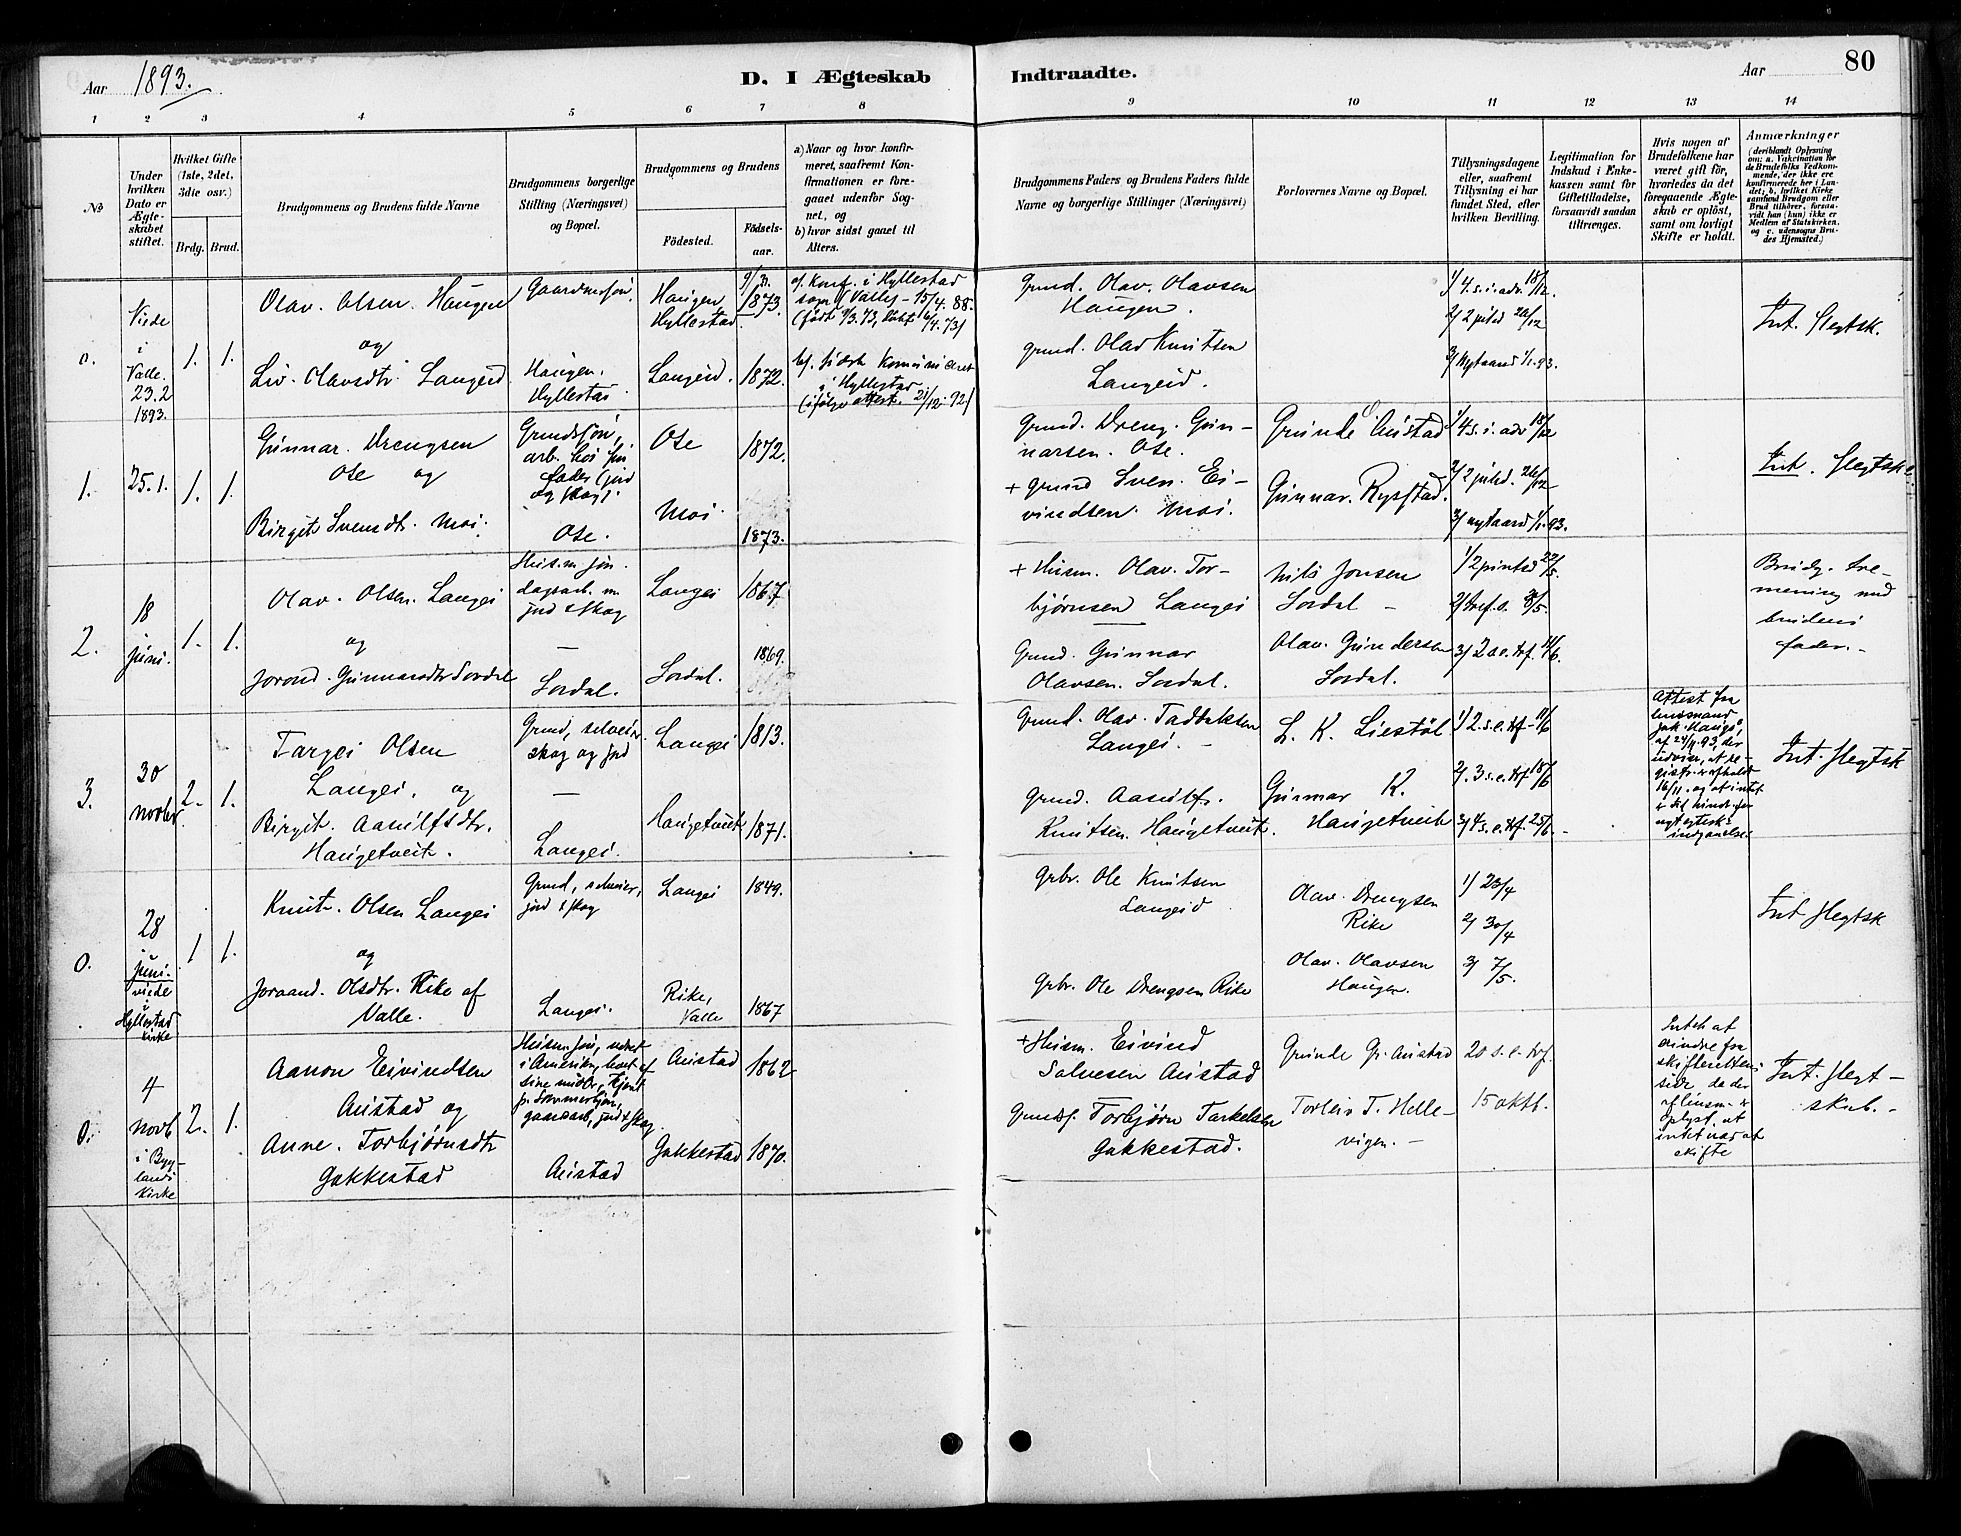 Aar 1893.
D. I Ægteskab
Indtraadte.
Aar
80
1 2 3 4 5 6 7 8
9 10 11 12 13 14
№
Under hvilken Dato er Ægteskabet stiftet.
Hvilket Gifte (1ste, 2det, 3die osv.)
Brdg. Brud.
Brudgommens og Brudens fulde Navne
Brudgommens borgerlige Stilling (Næringsvei) og Bopæl.
Brudgommens og Brudens
Fødested.
Fødselsaar.
a) Naar og hvor konfirmeret, saafremt Konfirmationen er foregaaet udenfor Sognet, og
b) hvor sidst gaaet til Alters.
Brudgommens Faders og Brudens Faders fulde Navne og borgerlige Stillinger (Næringsvei)
Forlovernes Navne og Bopæl.
Tillysningsdagene eller, saafremt Tillysning ei har fundet Sted, efter hvilken Bevilling.
Legitimation for Indskud i Enkekassen samt for Giftetilladelse, forsaavidt saadan tiltrænges.
Hvis nogen af Brudefolkene har været gift, hvorledes da det foregaaende Ægteskab er opløst, samt om lovligt Skifte er holdt.
Anmærkninger
(deriblandt Oplysning om: a. Vakcination for de Brudefolks Vedkommende, der ikke ere konfirmerede her i Landet; b. hvilket Kirkesamfund Brudgom eller Brud tilhører, forsaavidt han (hun) ikke er Medlem af Statskirken, og c. udensogns Brudes Hjemsted.)
0.
Viede
i
Valle.
23.2
1893.
1. 1.
Olav. Olsen. Haugen
og
Liv. Olavsdtr. Langeid.
Gaardmssøn.
Haugen.
Hyllestad
Haugen
Hyllestad.
Langeid.
9/3.
1873.
1872.
a). Konf. i Hyllestad
sogn (Valle) - 15/4. 88.
(født 9/3. 73, døbt 6/4. 73)
b). sidst kommuniceret
i Hyllestad
(ifølge attest. 21/12. 92)
Grmd. Olav. Olavsen
Haugen.
grmd. Olav Knutsen
Langeid.
1/ 4. s. i. adv. 18/12.
2/ 2 juled 26/12
3/ Nytaarsd 1/1. 93.
Int. Slegtsk.
1. 25.1. 1. 1.
Gunnar. Drengsen
Ose og
Birgit Svensdtr. Moi.
Grmdssøn,
arb. hos sin
fader (jord
og skog).
Ose.
Ose
Moi
1872.
1873.
Grmd. Dreng. Gun-
narsen. Ose.
+ grmd Sven. Ei-
vindsen. Moi.
Grunde Austad
Gunnar. Rysstad.
1/ 4 s. i. adv 18/12
2/ 2 juled. 26/12
3/ nytaarsd 1/1. 93.
Int. Slegtsk.
2.
18
juni.
1. 1.
Olav. Olsen. Langei
og
Jorond. Gunnarsdtr Sordal
Husm søn.
dagarb. m
jord & skog
—
Sordal.
Langei
Sordal.
1867.
1869.
+ Husm. Olav. Tor-
bjørnsen Langei
Grmd. Gunnar
Olavsen. Sordal.
Nils Jonsen
Sordal —
Olav. Gundersen
Sordal.
1/ 2 pintsd 22/5.
2/ Tref. s.
3/ 2 s. e. trf. 11/6.
Brudg. tre-
mening med
brudens
fader. -
3.
30
novbr.
2. 1.
Targei Olsen
Langei, og
Birgit. Aasulfsdtr.
Haugetveit.
Grmd, selveier
skog og jord
—
Langei.
Langei
Haugetveit
1813.
1871.
Grmd. Olav. Taddaksen
Langei. —
Grmd. Aasulf.
Knutsen. Haugetveit.
L. K. Liestøl
Gunnar K.
Haugetveit
1/ 2. s. e. trf - 11/6
2/. 3 s. e. trf 18/6
3/ 4 s. e. trf. 25/6. -
Attest fra
lensmand
Int. Slegtsk
0.
28
juni.
viede
i
Hyllestad
kirke
1 1.
Knut. Olsen Langei
og
Joraand. Olsdtr. Rike af
Valle.
Grmd, selveier,
jord & skog
Langei.
Langei
Rike,
Valle
1849.
1867
Grbr. Ole Knutsen
Langeid
Gbr. Ole Drengsen Rike
Olav. Drengsen
Rike
Olav. Olavsen
Haugen.
1) 23/4
2) 30/4
3) 7/5.
Int Slegtsk
0.
4
novb
i Byg-
lands
kirke
2. 1.
Aanon Eivindsen
Austad og
Anne. Torbjørnsdtr
Gakkestad
Husm søn,
i Amerika,
gaardsarb, jord & skog
Austad
Austad
Gakkestad
1862
1870.
+ Husm. Eivind
Salvesen Austad
Grmdsf. Torbjørn Tarkelsen
Gakkestad.
Grunde G. Austad
Torleiv T. Helle-
vigen. —
20 s. e. trf.
15 oktb.
Intet at
erindre fra
skifterettens
side da der
af lensm. er
oplyst, at
intet var at
skifte
Int. Slegt-
skab. -